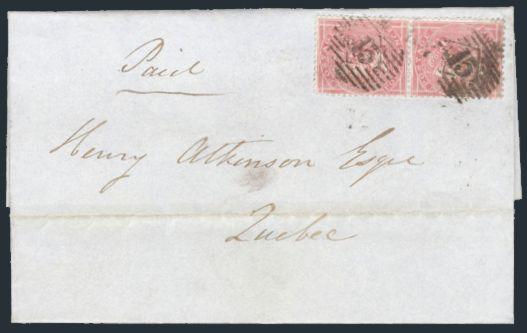 Paid
15 15
Henry Atkinson Esqe
Quebec